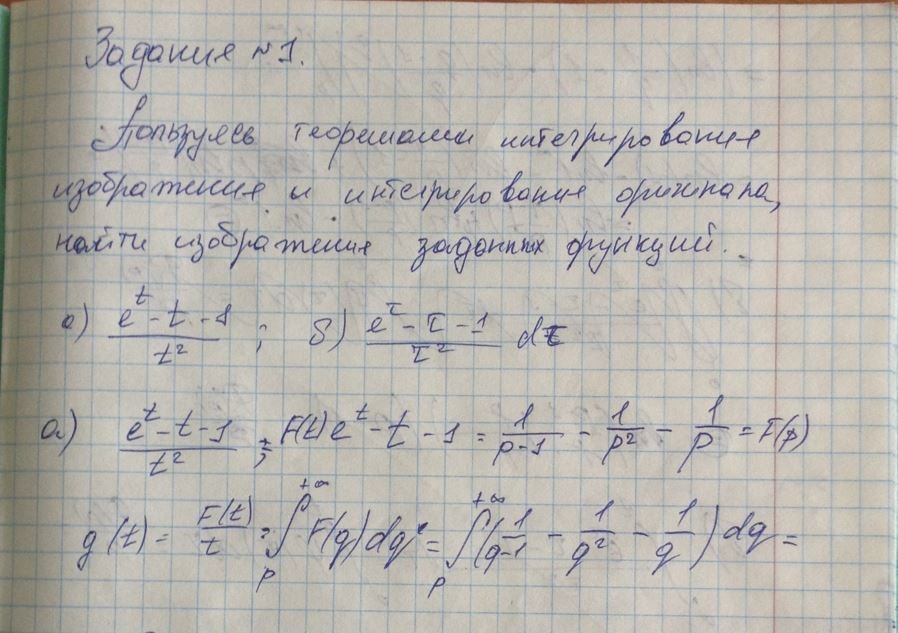 Задание №1.
Пользуясь теоремами интегрирования
изображения и интегрирования оригинала,
найти изображения заданных функций.
а) (e^t - t - 1)/t² ; б) (e^τ - τ - 1)/τ² dτ
а) (e^t - t - 1)/t² ; F(t) e^t - t - 1 = 1/(p-1) - 1/p² - 1/p = F(p)
g(t) = F(t)/t = ∫_p^{+∞} F(q) dq = ∫_p^{+∞} (1/(q-1) - 1/q² - 1/q) dq =